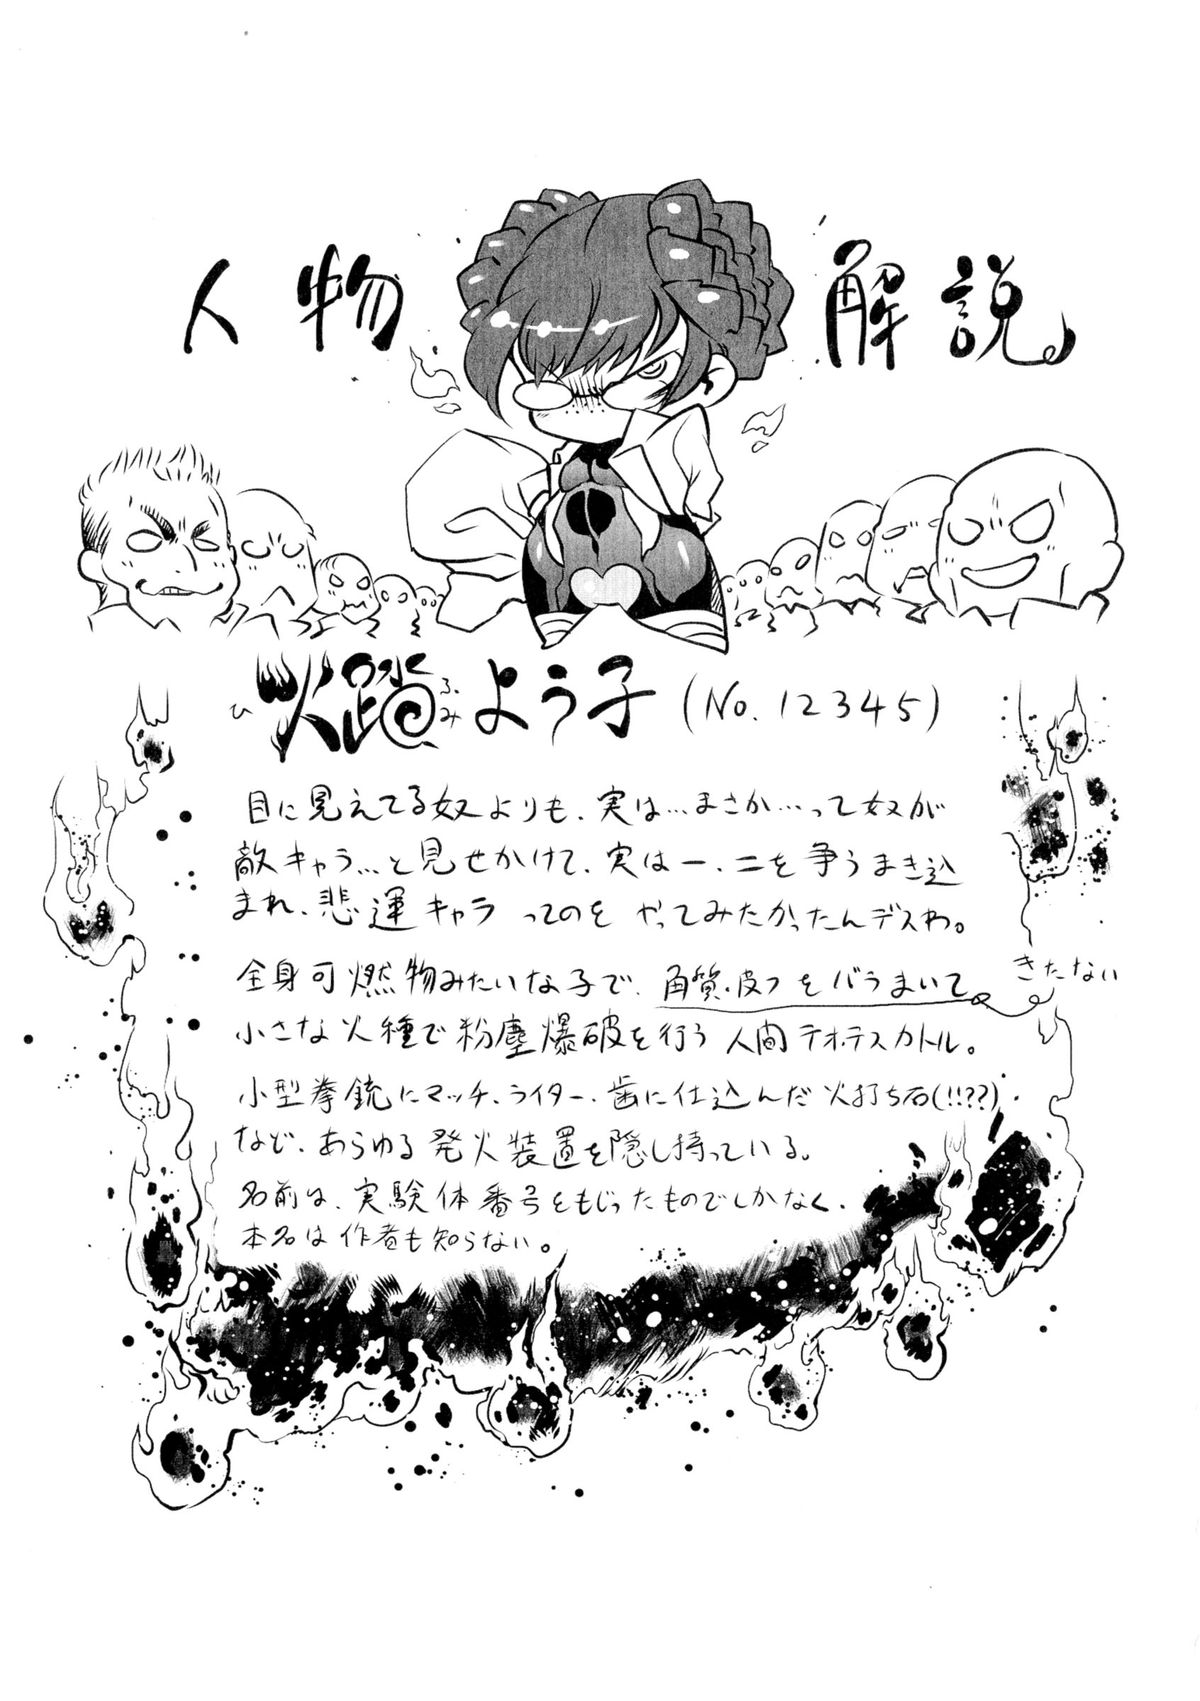 人物解説
火踏よう子(No.12345)
ひ
ふみ
目に見えてる奴よりも、実は…まさか…って奴が
敵キャラ…と見せかけて、実は一、二を争うまき込
まれ、悲運キャラってのをやってみたかったんデスわ。
全身可燃物みたいな子で、角質・皮フをバラまいて
きたない
小さな火種で粉塵爆破を行う人間テオ・テスカトル。
小型拳銃にマッチ、ライター、歯に仕込んだ火打ち石(!!??)、
など、あらゆる発火装置を隠し持っている。
名前は、実験体番号をもじったものでしかなく、
本名は作者も知らない。